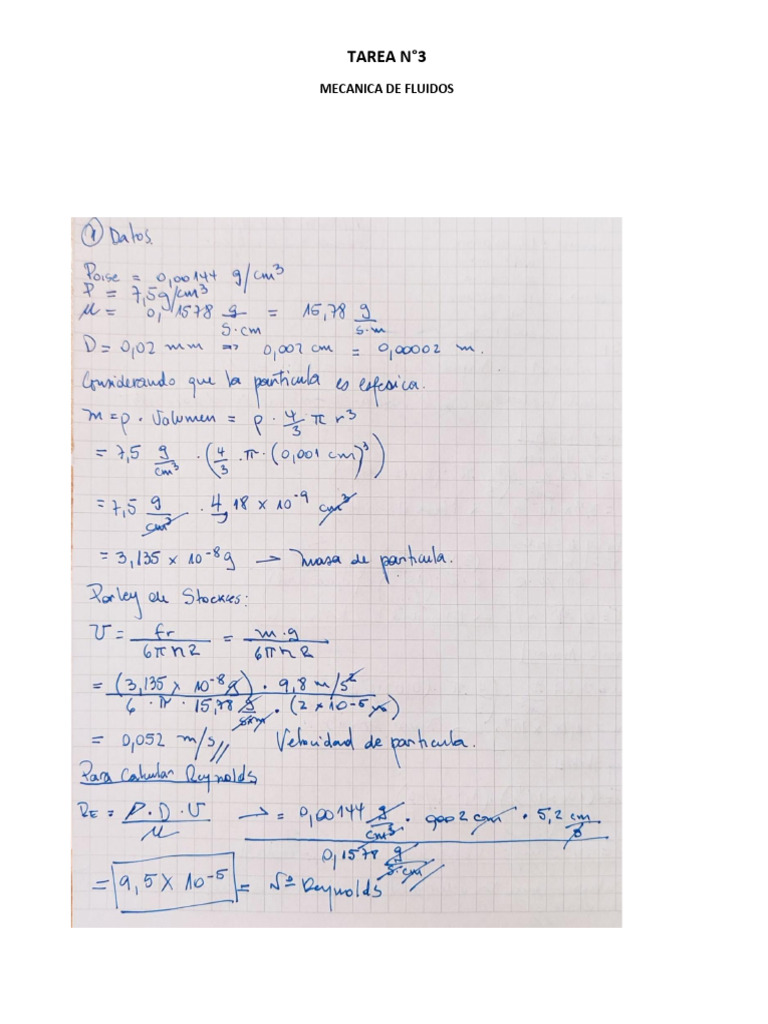 TAREA N°3
MECANICA DE FLUIDOS
① Datos.
Poise = 0,00144 g/cm³
P = 7,5g/cm³
μ = 0,1578 g/s·cm = 15,78 g/s·m
D = 0,02 mm => 0,002 cm = 0,00002 m.
Considerando que la particula es esferica.
m = ρ · Volumen = ρ · 4/3 π r³
= 7,5 g/cm³ · (4/3 · π · (0,001 cm)³)
= 7,5 g/cm³ · 4,18 x 10⁻⁹ cm³
= 3,135 x 10⁻⁸ g → masa de particula.
Por ley de Stockes:
V = fr/6πn2 = m·g/6πn2
= (3,135 x 10⁻⁸ g) · 9,8 m/s² / 6 · π · 15,78 g/s·m · (2 x 10⁻⁵ m)
= 0,052 m/s // Velocidad de particula.
Para Calcular Reynolds
RE = P·D·V/μ → = 0,00144 g/cm³ · 0,002 cm · 5,2 cm/s / 0,1578 g/s·cm
= 9,5 x 10⁻⁵ = Nº Reynolds